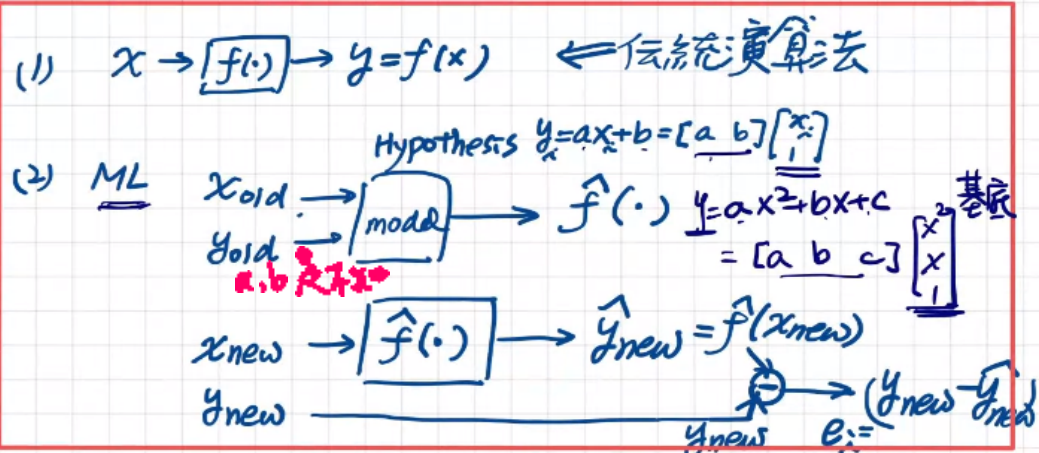 (1) x → f(·) → y=f(x) ⇐ 伝統演算法
Hypothesis yᵢ=axᵢ+b=[a b][xᵢ 1]
(2) ML x_old → model → f̂(·) y=ax²+bx+c 基底
y_old → = [a b c][x² x 1]
a,b
x_new → f̂(·) → ŷ_new = f̂(x_new)
y_new ⊖ → (y_new-ŷ_new)
y_new eᵢ=